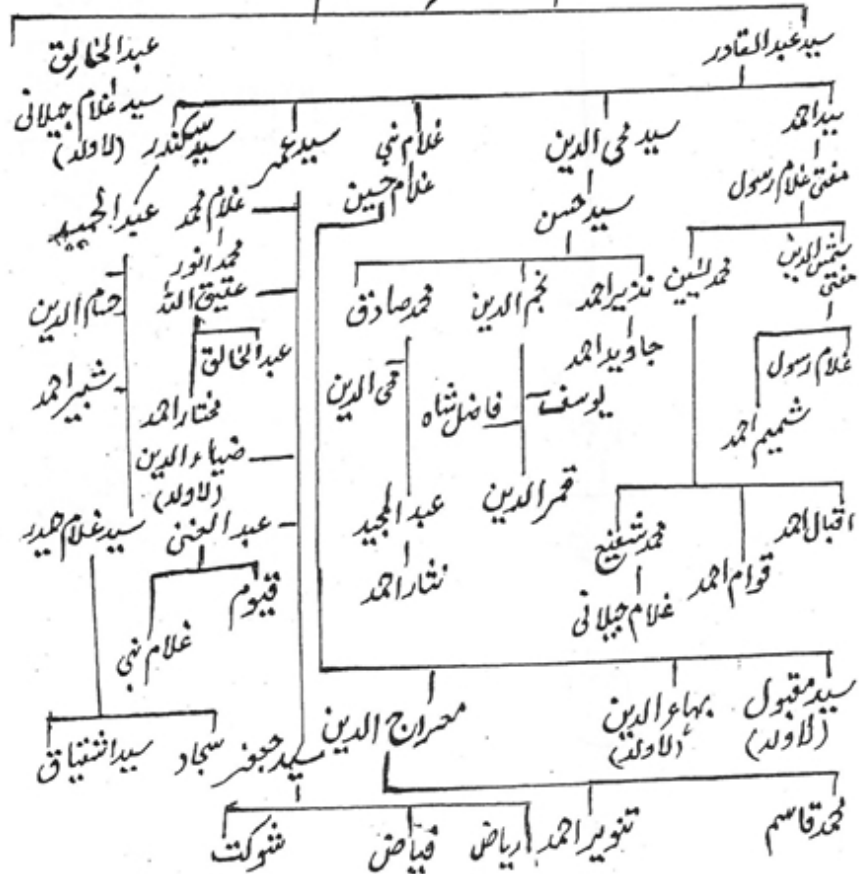 سید عبدالقادر عبدالخالق
سید احمد سید محی الدین غلام نبی سید عمر سید سکندر (لاولد) سید غلام جیلانی
مفتی غلام رسول سید حسن غلام حسین غلام محمد عبدالحمید
شمس الدین مفتی محمد یٰسین نذیر احمد نجم الدین محمد صادق محمد انور
عتیق اللہ حسام الدین
غلام رسول جاوید احمد محی الدین عبدالخالق شبیر احمد
شمیم احمد یوسف فاضل شاہ مختار احمد
قمر الدین عبدالمجید ضیاء الدین (لاولد)
اقبال احمد قوام احمد محمد شفیع نثار احمد عبدالغنی سید غلام حیدر
غلام جیلانی قیوم غلام نبی
سید مقبول (لاولد) بہاء الدین (لاولد) معراج الدین سید جعفر سجاد سید اشتیاق
محمد قاسم تنویر احمد ریاض فیاض شوکت